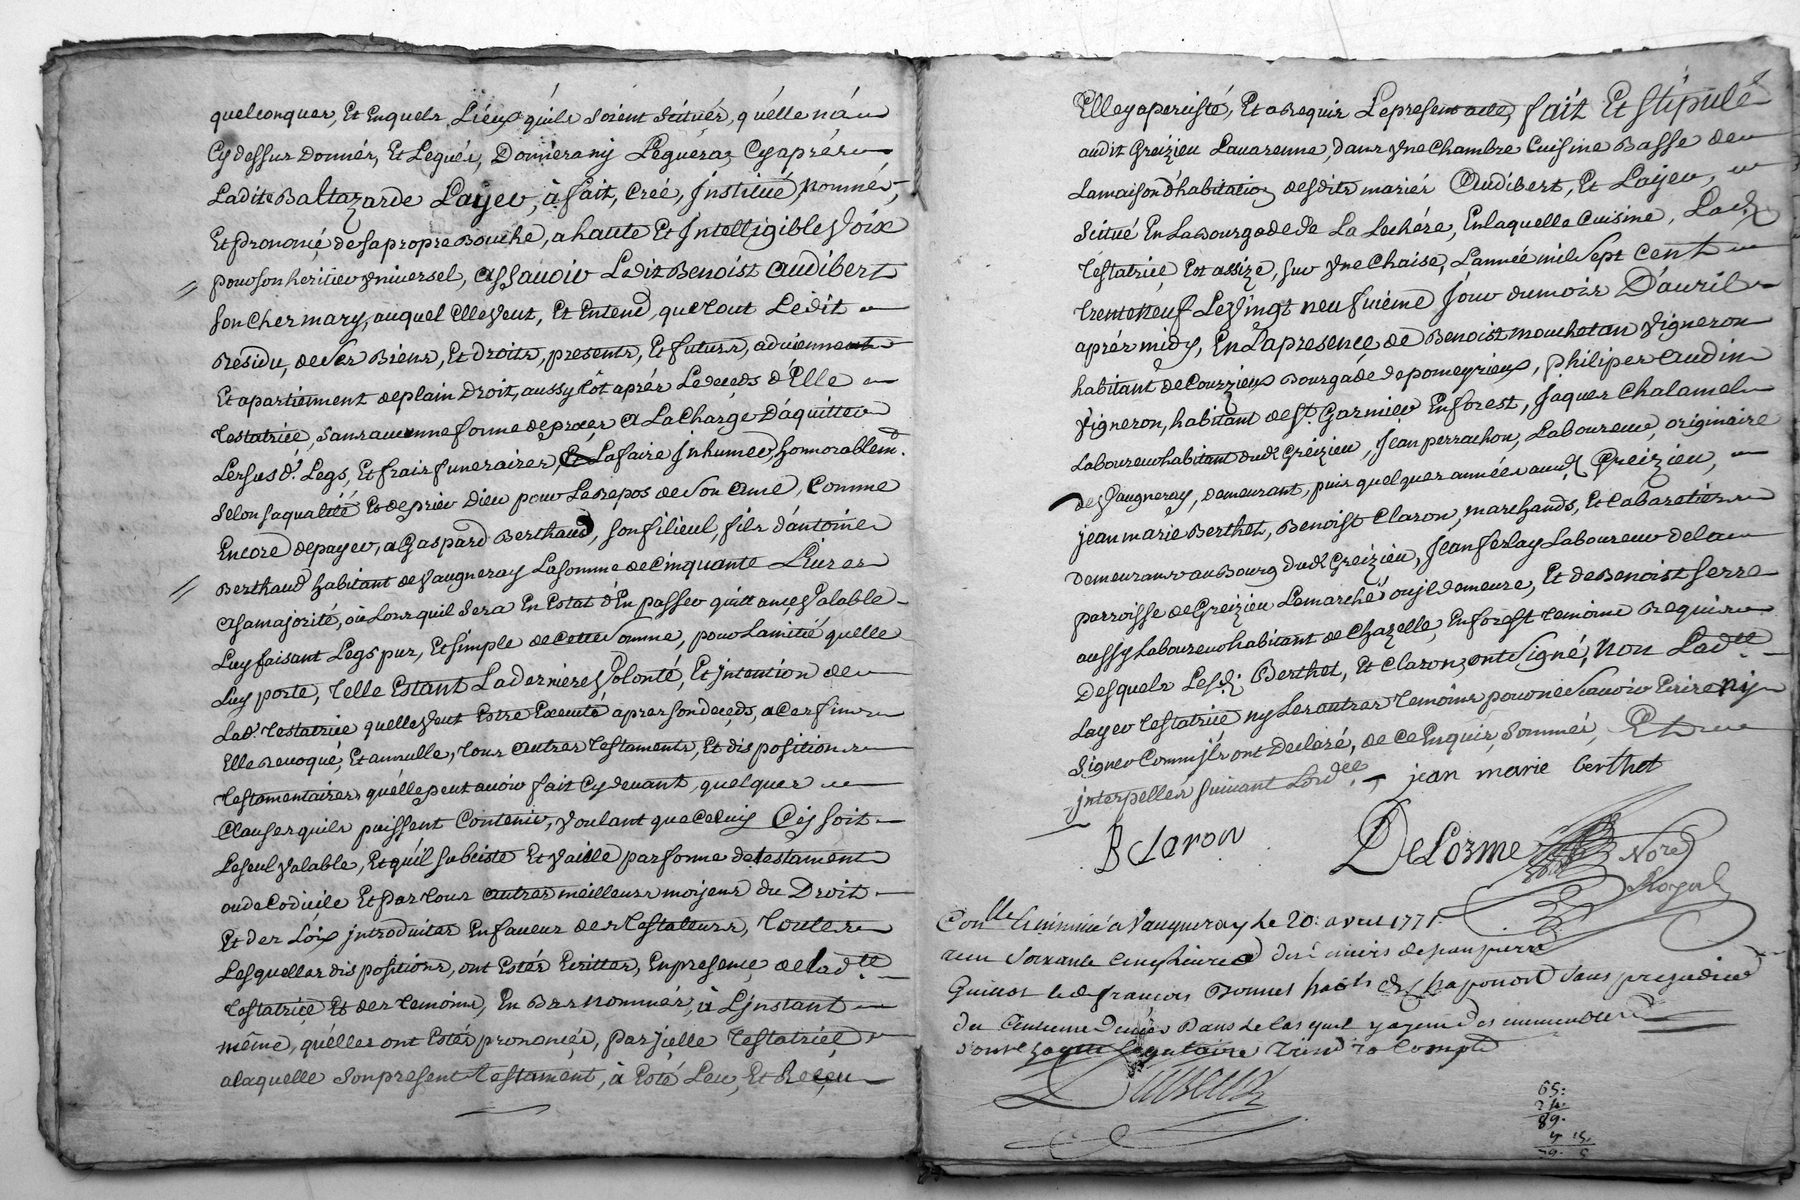 quelconques, Et Enquels Liéux qu'ils soient situés, qu'élle n'á
Cy dessus Donnés, Et Legués, Donnéra ny Léguéra Cyaprés
Ladite Baltazarde Layeu, à fait, créé, Jnstitué, Nommé,
Et Prononcé, de sa propre Bouche, a haute Et Jntelligible Voix
pour son heritier Vniversel, assavoir Ledit Benoist Audibert
son Cher mary, auquel Elle Veut, Et Entend, que tout Le dit
Residu, de ses Biens, Et droits, presents, Et futurs, adviennent
Et apartiennent de plain Droit, aussy tôt aprés Le deceds d'Elle
testatrice, sans aucunne forme de procés, a La Charge D'aquitter
Lersusd.t Legs, Et frais funeraires, Et La faire Jnhumer, honnorablem.t
selon sa qualité Et de priér Dieu pour Le repos de son ame, Comme
Encore de payer, a Gaspard Berthaud, son filieul, fils d'antoine
Berthaud habitant de Vaugneray La somme de Cinquante Livres
a sa majorité, où Lors quil sera En Estat d'En passer quittance Valable
Luy faisant Legs pur, Et simple de Cette somme, pour Lamitié quelle
Luy porte, telle Estant La derniere Volonté, Et Jntention de
Lad.e testatrice quelle Veut Estre Executé apres son deceds, a Ces fins
Elle Revoqué, Et annulle, tous autres testaments, Et dispositions
testamentaires, qu'élle peut avoir fait Cy devant, quelques
Clauses quils puissent Contenir, Voulant que Celuy Cy soit
Le seul Valable, Et qu'il subsiste Et Vaille par forme de testament
ou de Codicile Et par tous autres meilleurs moÿens du Droit
Et des Loix jntroduites En faveur des testateurs, toutes
Lesquelles dispositions, ont Estés Ecrittes, En presence de lad.te
testatrice Et des temoins, En Bas nommés, à Ljnstant
même, qu'élles ont Estés prononcés, par jcelle testatrice
a laquelle son present testament, à Esté Leu, Et Releu
Elle y a persisté, Et a Requis Le present acte, fait Et stipulé
audit Greizieu Lavarenne, dans Vne Chambre Cuisine Basse de
La maison d'habitation desdits mariés Audibert, Et Layeu,
scitué En La Bourgade de La Lechére, En laquelle Cuisine, Lad.e
testatrice Est assize, sur Vne Chaise, L'année mil sept cent
trente neuf Le Vingt neufuiéme jour du mois D'avril
aprés midy, En La presence de Benoist mouchetan Vigneron
habitant de Courzieux Bourgade de pomeyrieux, Philipes Audin
Vigneron, habitant de S.t Garmier En forest, Jaques Chalamel
Laboureur habitant dud.t Greizieu, Jean perrachon, Laboureur, originaire
de Vaugneray, demeurant, puis quelques années aud.t Greizieu,
jean marie Berthet, Benoist Claron, marchands, Et Cabaretiers
Demeurans au Bourg dud.t Greizieu, Jean ferlay Laboureur de la
parroisse de Greizieu Le marché, ou jl demeure, Et de Benoist Serre
aussy Laboureur habitant de Chazelle, En forest temoins Requis
Desquels Lesd.ts Berthet, Et Claron, ont signé, Non Lad.te
Layeu testatrice ny Les autres temoins pour ne sçavoir Ecrire ny
signer Comm'jls ont declaré, de Ce Enquis, sommés, Et
jnterpellés suivant Lord.ce jean marie berthet
B Claron DeLorme Not.e
Royal
Con.lle à Vaugneray Le 20: avril 1771.
Recu soixante cinq livres de jean pierre
françois Bonnet sans prejudice
du Centieme Denier Dans le cas quil y ayent des immeubles
65:
24:
89.